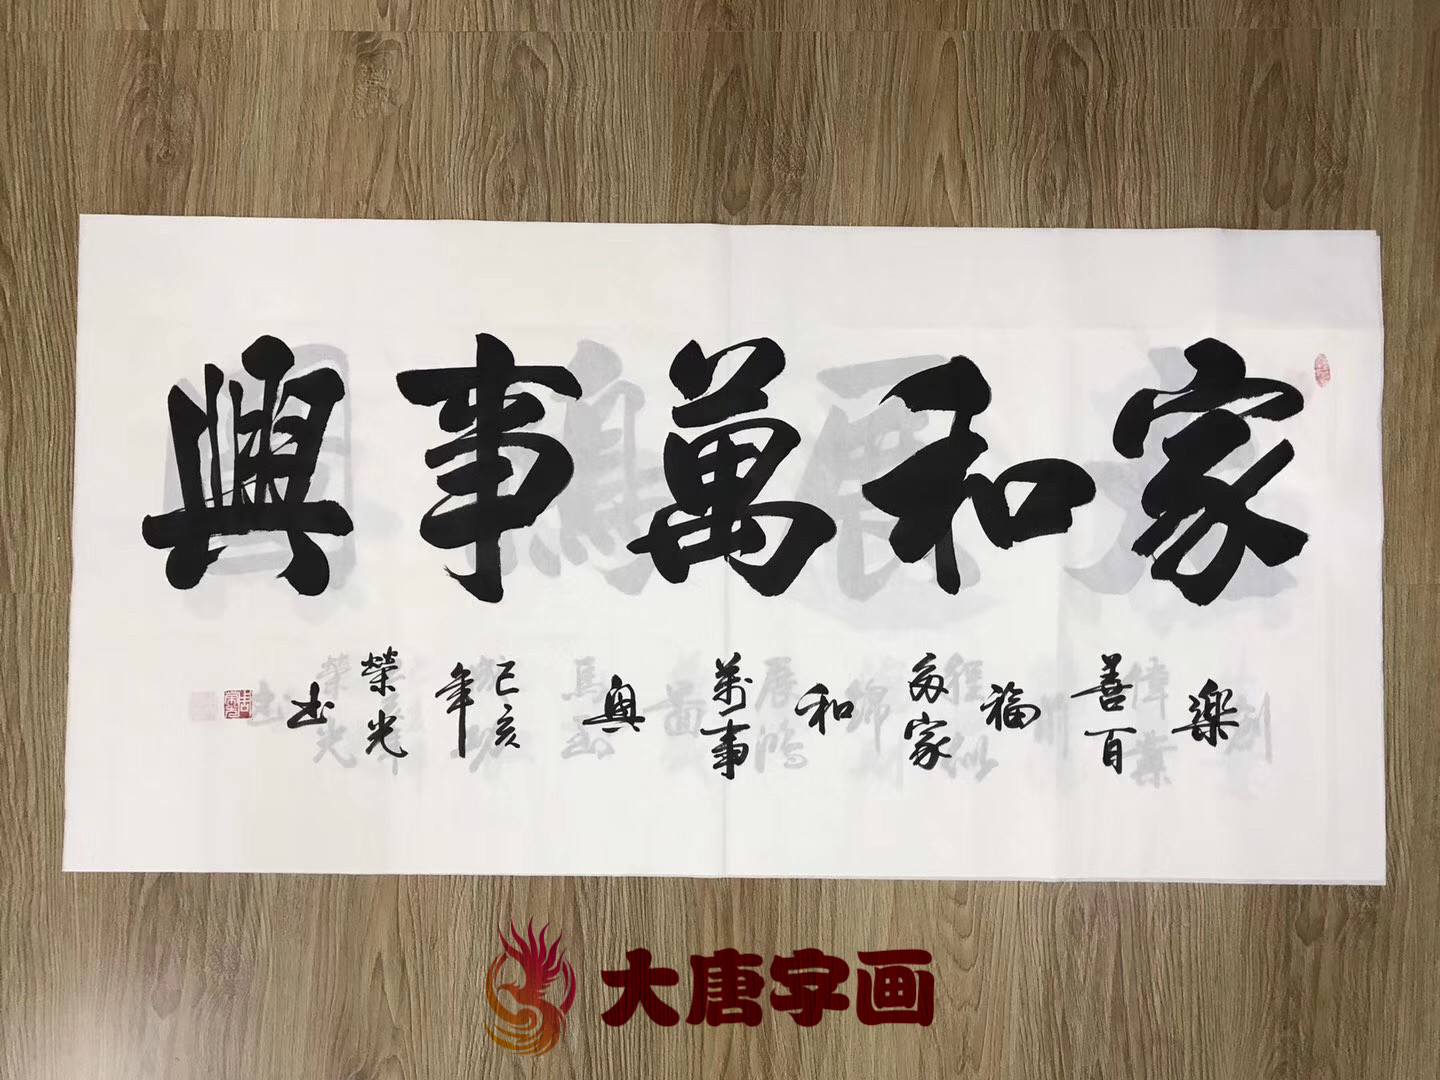 家和萬事興
樂善百福多家和萬事興
己亥年
榮光書
大唐字画